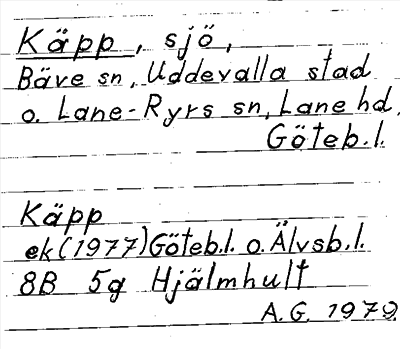 Käpp, sjö,
Bäve sn, Uddevalla stad
o. Lane-Ryrs sn, Lane hd,
Göteb.l.
Käpp
ek (1977) Göteb.l. o. Älvsb.l.
8B 5g Hjälmhult
A.G. 1979.